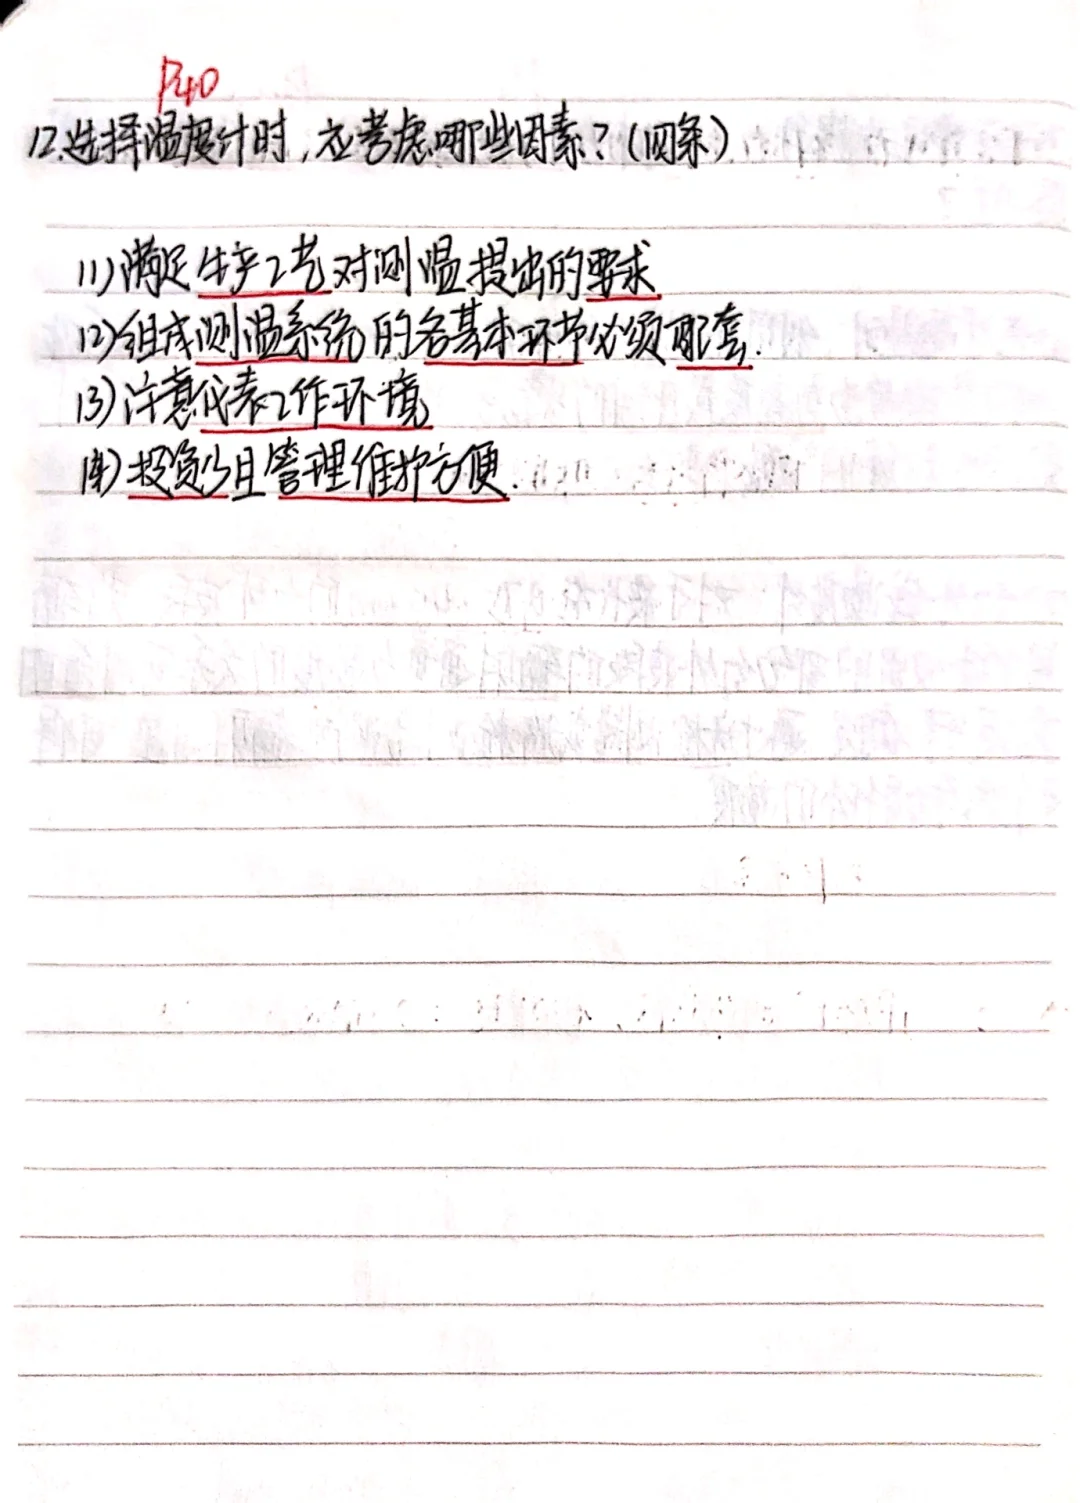 P40
12.选择温度计时,应考虑哪些因素?(四条)
(1)满足生产工艺对测温提出的要求
(2)组成测温系统的各基本环节必须配套.
(3)注意仪表工作环境
(4)投资少且管理维护方便.